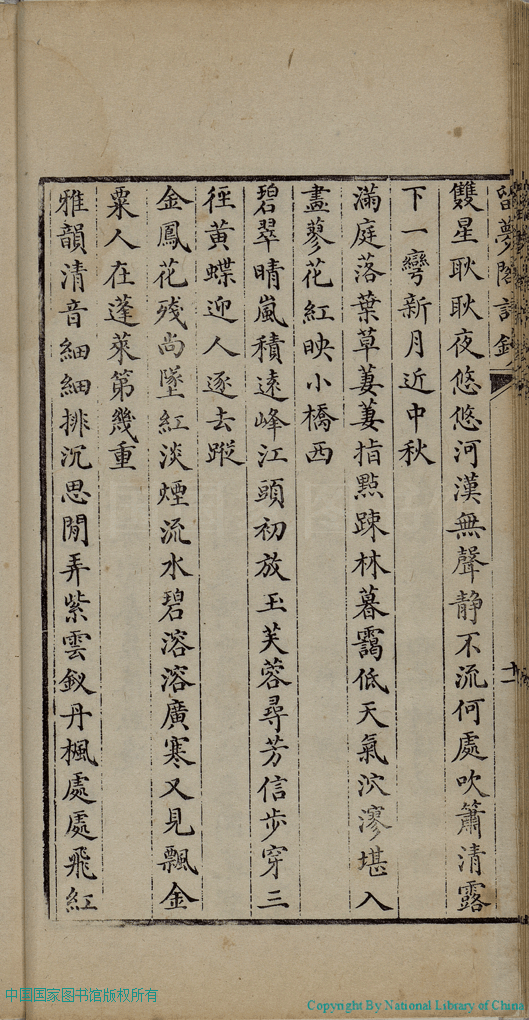 留夢閣詩鈔
十一
雙星耿耿夜悠悠河漢無聲静不流何處吹簫清露
下一彎新月近中秋
滿庭落葉草萋萋指點踈林暮靄低天氣泬漻堪入
畫蓼花紅映小橋西
碧翠晴嵐積遠峰江頭初放玉芙蓉尋芳信步穿三
徑黃蝶迎人逐去蹤
金鳳花殘尚墜紅淡煙流水碧溶溶廣寒又見飄金
粟人在蓬萊第幾重
雅韻清音細細排沉思閒弄紫雲釵丹楓處處飛紅
中国国家图书馆版权所有
Copyright By National Library of China